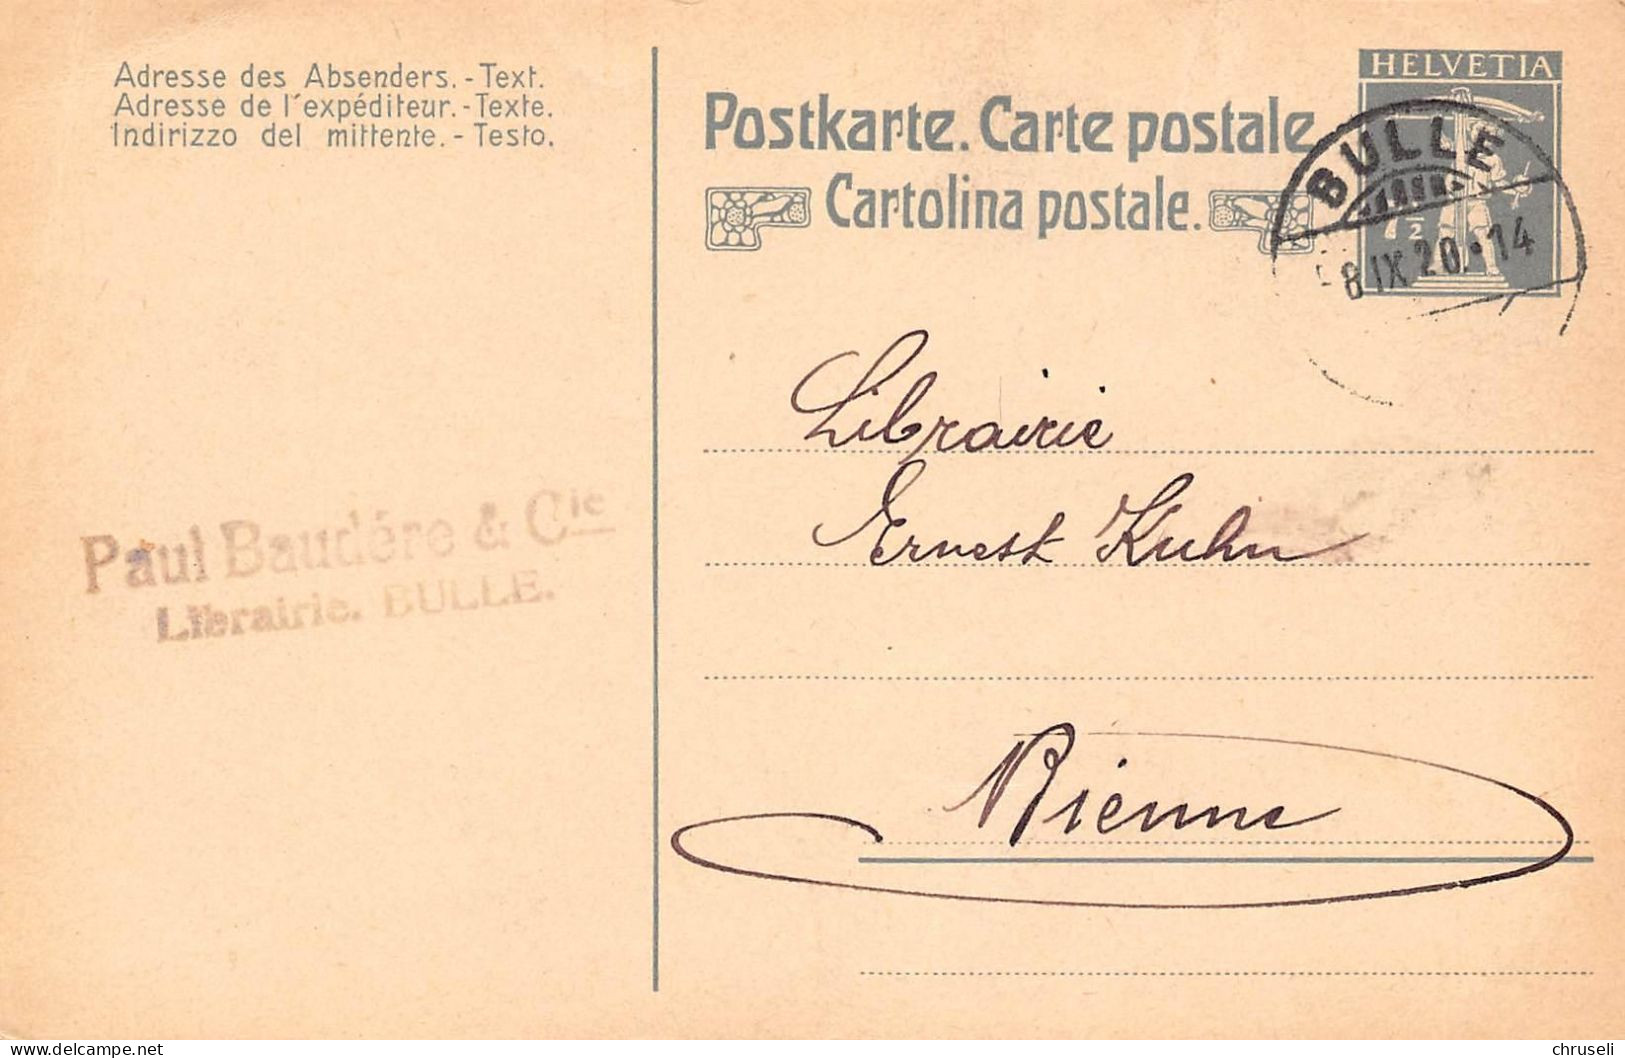 Adresse des Absenders.-Text.
Adresse de l'expéditeur.-Texte.
Indirizzo del mittente.-Testo.
Postkarte. Carte postale
Cartolina postale.
HELVETIA
7½
BULLE
8 IX 20.·14
Librairie
Ernest Kuhn
Bienne
Paul Baudère & Cie
Librairie. BULLE.
delcampe.net
chruseli